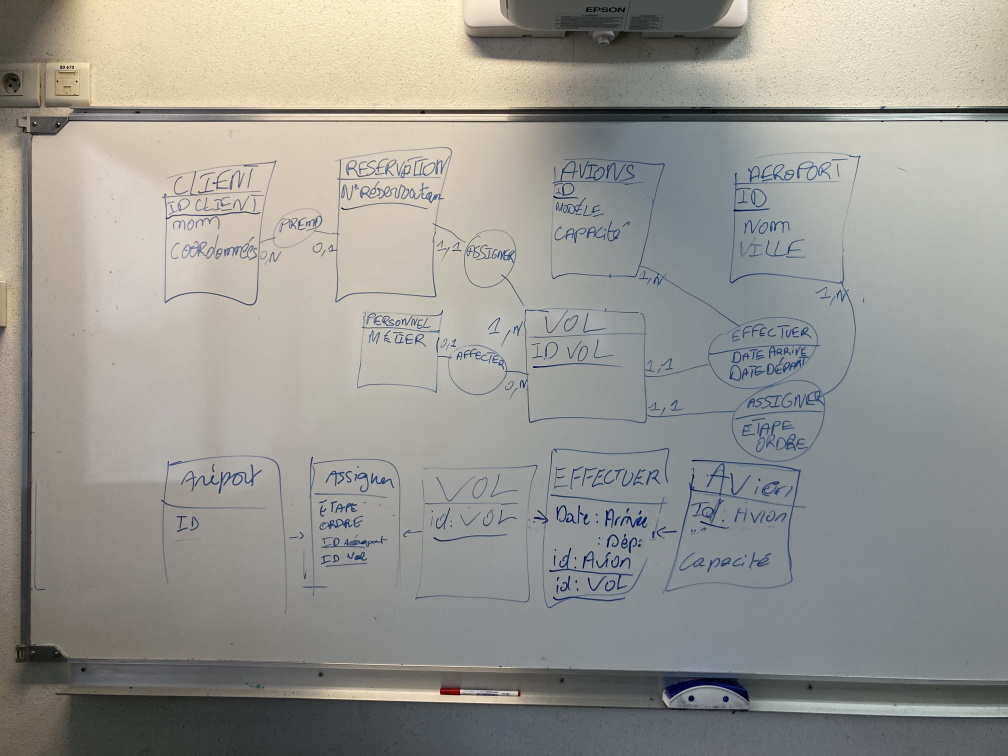 EPSON
CLIENT
ID CLIENT
nom
COORdonnéés
PREND
0,N
0,1
RESERVATION
N° Réservation
1,1
ASSIGNER
1,N
AVIONS
ID
MODÈLE
CAPACITÉ
1,N
AEROPORT
ID
Nom
VILLE
1,N
PERSONNEL
MÉTIER
0,1
AFFECTER
0,N
VOL
ID VOL
1,1
1,1
EFFECTUER
DATE ARRIVÉ
DATE DÉPART
ASSIGNER
ETAPE
ORDRE
Aréport
ID
Assigner
ETAPE
ORDRE
ID Aéroport
ID Vol
VOL
id: VOL
EFFECTUER
Date: Arrivée
: Dép.
id: Avion
id: VOL
AVion
Id. Avion
Capacité